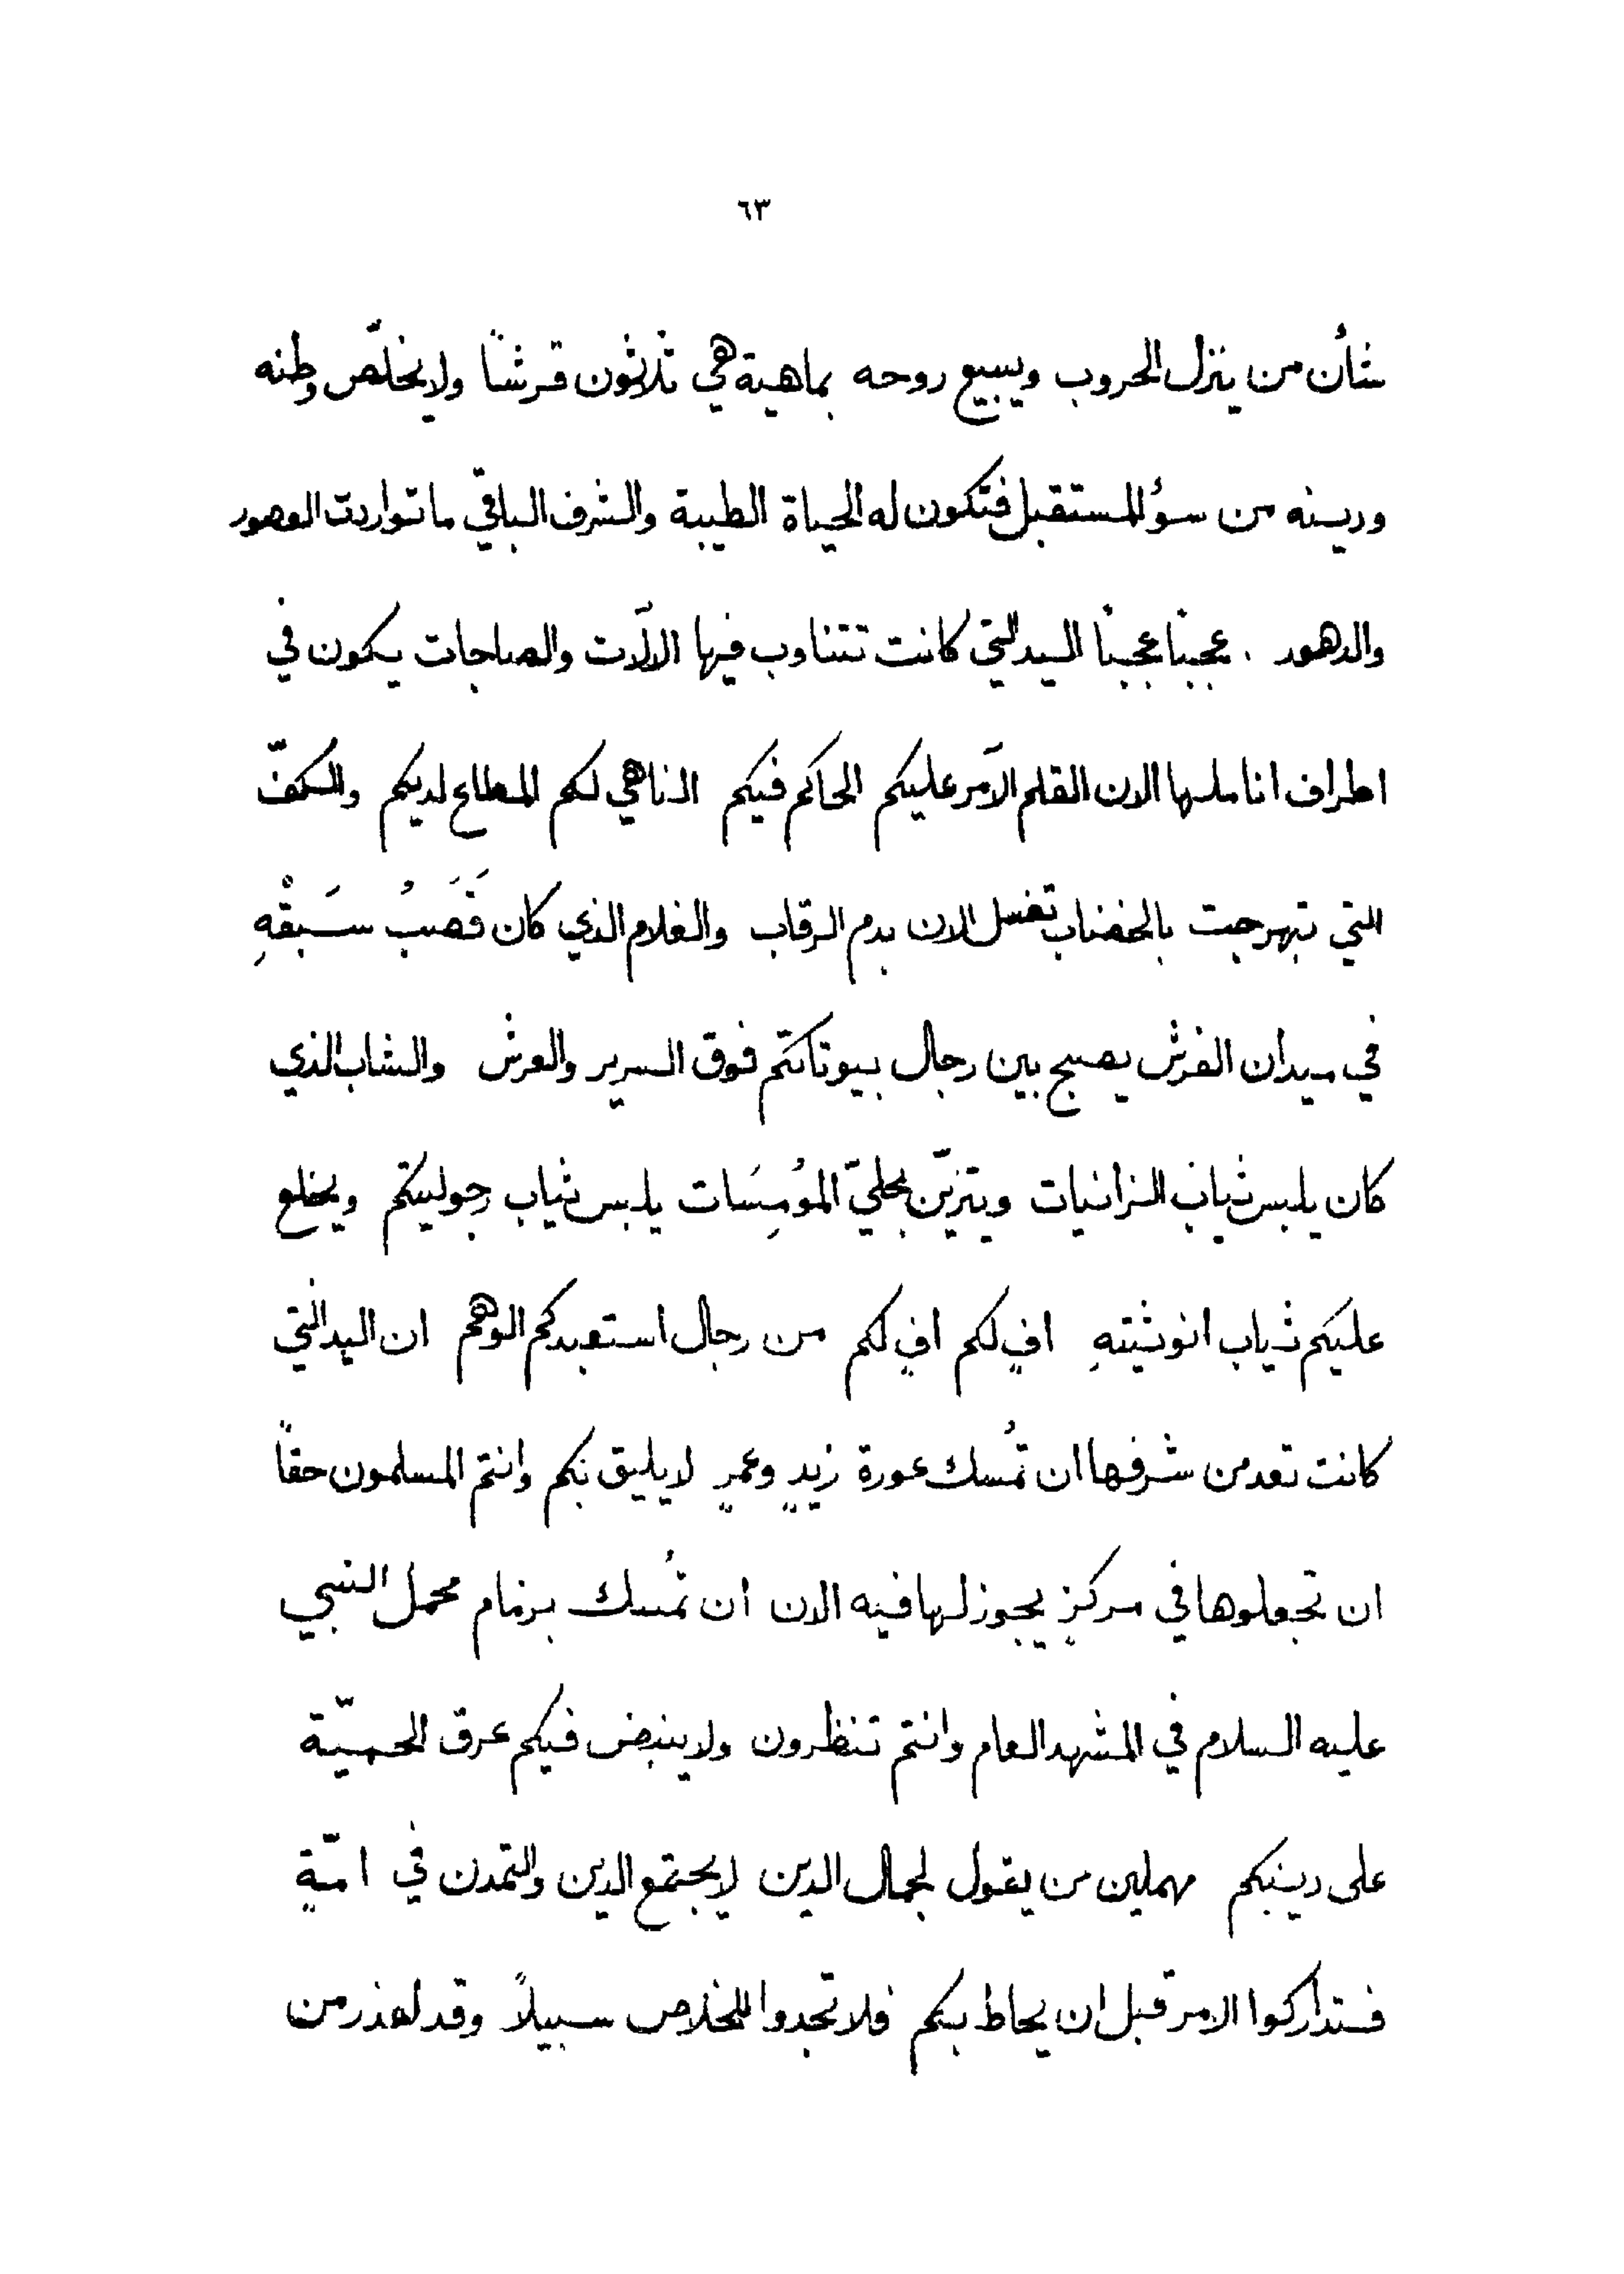 ٦٣
شأن من ينزل الحروب ويبيع روحه بماهية هي ثلاثون قرشًا ولا يخلّص وطنه
ودينه من سؤ المستقبل فتكون له الحياة الطيبة والشرف الباقي ما تواردت العصور
والدهور . عجبًا عجبًا اليد التي كانت تتناوب فيها الالآت والصاجات يكون في
اطراف اناملها الان القلم الآمر عليكم الحاكم فيكم الناهي لكم المطاع لديكم والكفّ
التي تبهرجت بالخضاب تغسل الان بدم الرقاب والغلام الذي كان قَصَبُ سَبقْهِ
في ميدان الفرش يصبح بين رجال بيوتاتكم فوق السرير والعرش والشاب الذي
كان يلبس ثياب الزانيات ويتزيّن بحليّ المُومِسَات يلبس ثياب رجوليتكم ويخلع
عليكم ثياب انوثيتهِ افٍ لكم افٍ لكم من رجال استعبدكم الوهم ان اليد التي
كانت تعد من شرفها ان تُمسك عورة زيدٍ وعمرٍ لا يليق بكم وانتم المسلمون حقًا
ان تجعلوها في مركزٍ يجوز لها فيه الان ان تمُسك بزمام محمل النبي
عليه السلام في المشهد العام وانتم تنظرون ولا ينبض فيكم عرق الحميّة
على دينكم مهملين من يقول لجمال الدين لا يجتمع الدين والتمدن في امّةٍ
فستداركوا الامر قبل ان يحاط بكم فلا تجدوا للخلاص سبيلاً وقد اعذر من